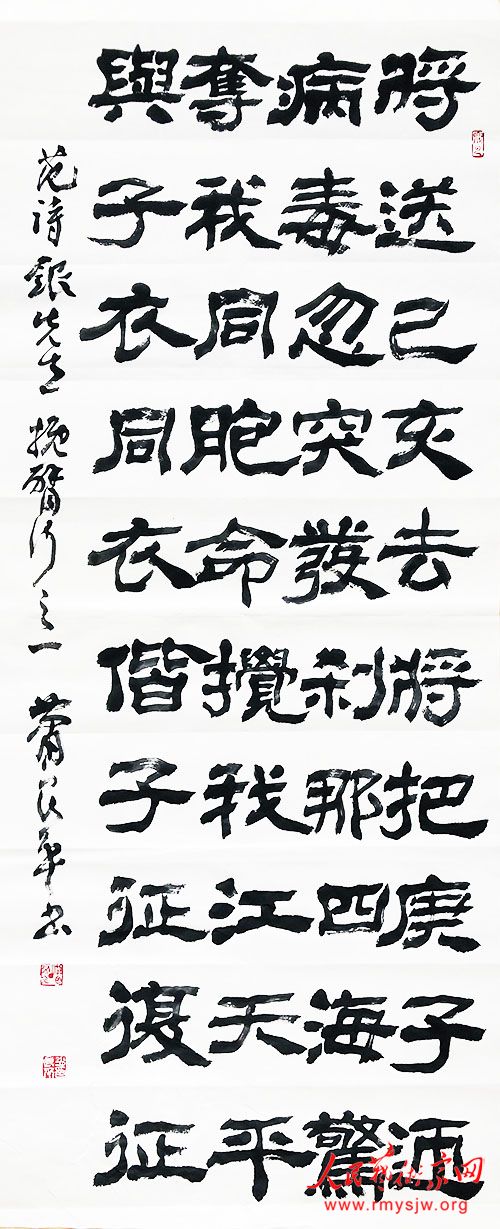 將送己亥去將把庚子迎
病毒忽突發剎那四海驚
奪我同胞命攪我江天平
與子衣同衣偕子征復征
范詩銀先生挽臂行之一 蕭民書
人民藝術家网
www.rmysjw.org